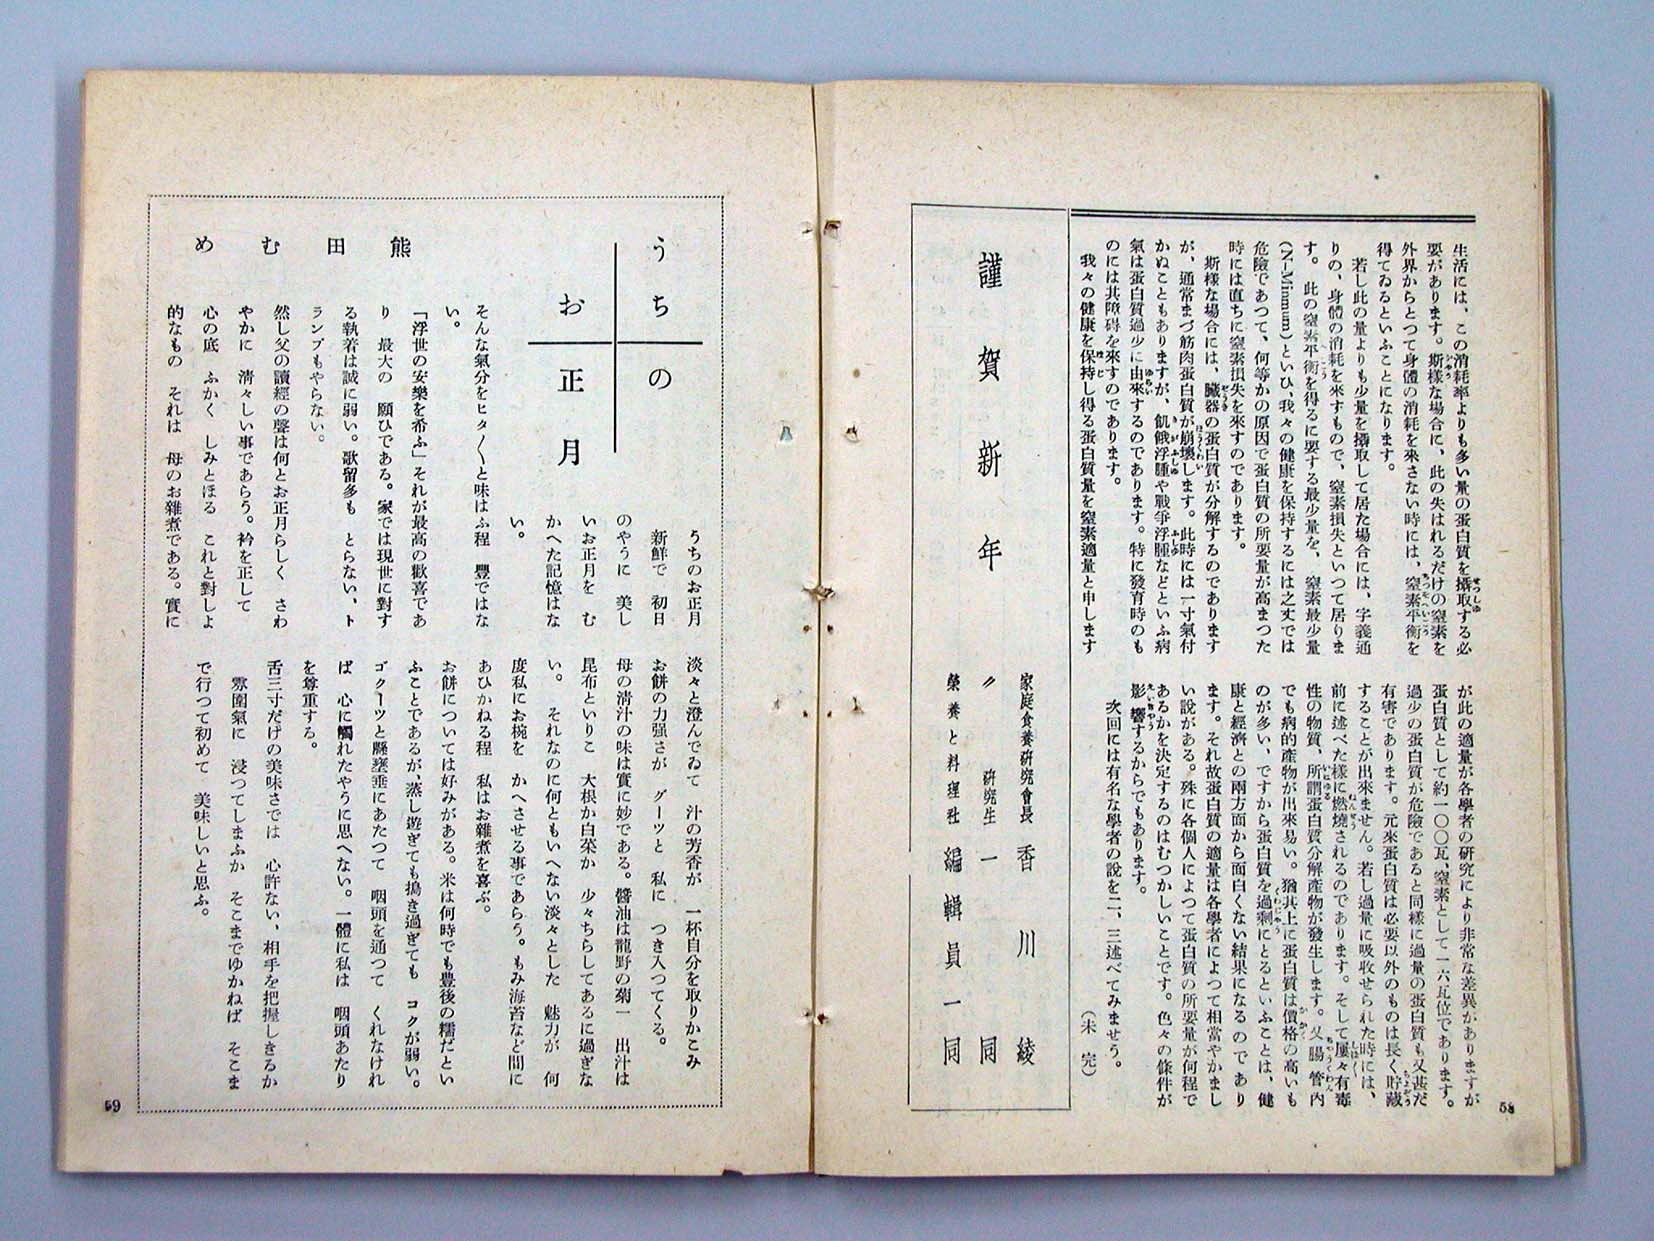 生活には、この消耗率よりも多い量の蛋白質を攝取する必
要があります。斯樣な場合に、此の失はれるだけの窒素を
外界からとつて身體の消耗を來さない時には、窒素平衡を
得てゐるといふことになります。
若し此の量よりも少量を攝取して居た場合には、字義通
りの、身體の消耗を來すもので、窒素損失といつて居りま
す。此の窒素平衡を得るに要する最少量を、窒素最少量
(N-Minimum)といひ、我々の健康を保持するには之丈では
危險であつて、何等かの原因で蛋白質の所要量が高まつた
時には直ちに窒素損失を來すのであります。
斯樣な場合には、臓器の蛋白質が分解するのであります
が、通常まづ筋肉蛋白質が崩壞します。此時には一寸氣付
かぬこともありますが、飢餓浮腫や戰爭浮腫などといふ病
氣は蛋白質過少に由來するのであります。特に發育時のも
のには其障碍を來すのであります。
我々の健康を保持し得る蛋白質量を窒素適量と申します
が此の適量が各學者の研究により非常な差異がありますが
蛋白質として約一〇〇瓦、窒素として一六瓦位であります。
過少の蛋白質が危險であると同樣に過量の蛋白質も又甚だ
有害であります。元來蛋白質は必要以外のものは長く貯藏
することが出來ません。若し過量に吸收せられた時には、
前に述べた樣に燃燒されるのであります。そして屢々有毒
性の物質、所謂蛋白質分解產物が發生します。又腸管內
でも病的產物が出來易い。猶其上に蛋白質は價格の高いも
のが多い、ですから蛋白質を過剩にとるといふことは、健
康と經濟との兩方面から面白くない結果になるのであり
ます。それ故蛋白質の適量は各學者によつて相當やかまし
い說がある。殊に各個人によつて蛋白質の所要量が何程で
あるかを決定するのはむつかしいことです。色々の條件が
影響するからでもあります。
次回には有名な學者の說を二、三述べてみませう。
(未完)
謹賀新年
家庭食養硏究會長 香川綾
〃 硏究生一同
榮養と料理社 編輯員一同
58
うちの
お正月
熊田むめ
うちのお正月
新鮮で 初日
のやうに 美し
いお正月を む
かへた記憶はな
い。
そんな氣分をヒタ〱と味はふ程 豐ではな
い。
「浮世の安樂を希ふ」それが最高の歡喜であ
り 最大の 願ひである。家では現世に對す
る執着は誠に弱い。歌留多も とらない、ト
ランプもやらない。
然し父の讀經の聲は何とお正月らしく さわ
やかに 淸々しい事であらう。衿を正して
心の底 ふかく しみとほる これと對しよ
的なもの それは 母のお雜煮である。實に
淡々と澄んでゐて 汁の芳香が 一杯自分を取りかこみ
お餅の力强さが グーツと 私に つき入つてくる。
母の淸汁の味は實に妙である。醬油は龍野の菊一 出汁は
昆布といりこ 大根か白菜か 少々ちらしてあるに過ぎな
い。 それなのに何ともいへない淡々とした 魅力が 何
度私にお椀を かへさせる事であらう。もみ海苔など間に
あひかねる程 私はお雜煮を喜ぶ。
お餅については好みがある。米は何時でも豊後の糯だとい
ふことであるが、蒸し過ぎても搗き過ぎても コクが弱い。
ゴクーツと懸壅垂にあたつて 咽頭を通つて くれなけれ
ば 心に觸れたやうに思へない。一體に私は 咽頭あたり
を尊重する。
舌三寸だけの美味さでは 心許ない、相手を把握しきるか
雰圍氣に 浸つてしまふか そこまでゆかねば そこま
で行つて初めて 美味しいと思ふ。
59